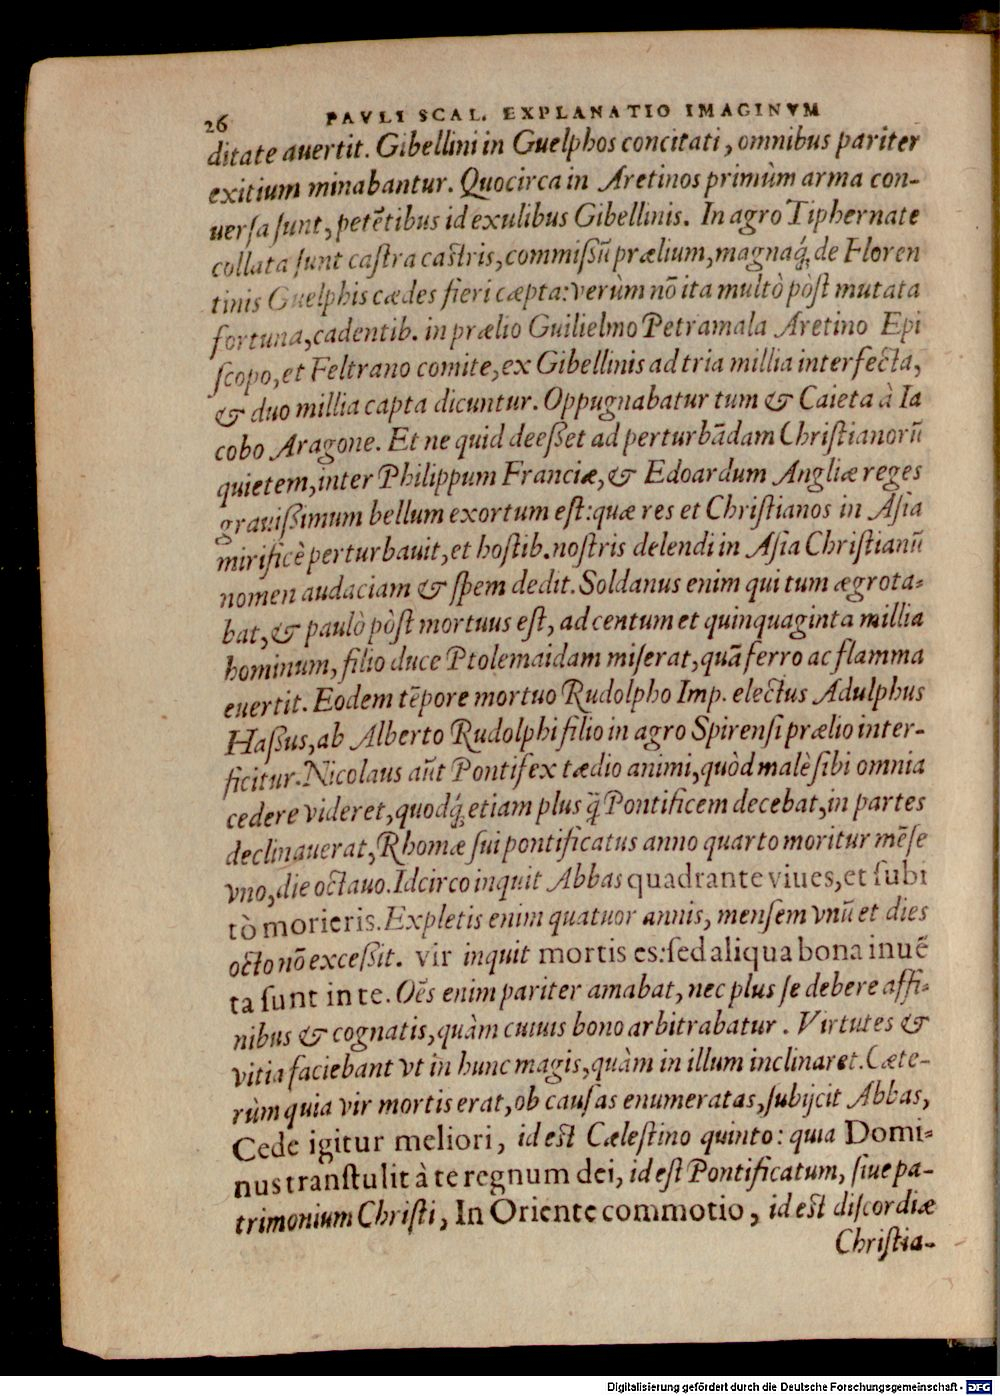 26 PAVLI SCAL. EXPLANATIO IMAGINVM
ditate auertit. Gibellini in Guelphos concitati, omnibus pariter
exitium minabantur. Quocirca in Aretinos primùm arma con-
uersa sunt, petẽtibus id exulibus Gibellinis. In agro Tiphernate
collata sunt castra castris, commißũ prælium, magnaq́; de Floren
tinis Guelphis cædes fieri cæpta: verùm nõ ita multò pòst mutata
fortuna, cadentib. in prælio Guilielmo Petramala Aretino Epi
scopo, et Feltrano comite, ex Gibellinis ad tria millia interfecta,
& duo millia capta dicuntur. Oppugnabatur tum & Caieta à Ia
cobo Aragone. Et ne quid deeßet ad perturbãdam Christianorũ
quietem, inter Philippum Franciæ, & Edoardum Angliæ reges
grauißimum bellum exortum est: quæ res et Christianos in Asia
mirificè perturbauit, et hostib. nostris delendi in Asia Christianũ
nomen audaciam & spem dedit. Soldanus enim qui tum ægrota-
bat, & paulò pòst mortuus est, ad centum et quinquaginta millia
hominum, filio duce Ptolemaidam miserat, quã ferro ac flamma
euertit. Eodem tẽpore mortuo Rudolpho Imp. electus Adulphus
Haßus, ab Alberto Rudolphi filio in agro Spirensi prælio inter-
ficitur. Nicolaus aũt Pontifex tædio animi, quòd malè sibi omnia
cedere videret, quodq́; etiam plus q̃ Pontificem decebat, in partes
declinauerat, Rhomæ sui pontificatus anno quarto moritur mẽse
vno, die octauo. Idcirco inquit Abbas quadrante viues, et subi
tò morieris. Expletis enim quatuor annis, mensem vnũ et dies
octo nõ exceßit. vir inquit mortis es: sed aliqua bona inuẽ
ta sunt in te. Oẽs enim pariter amabat, nec plus se debere affi-
nibus & cognatis, quàm cuiuis bono arbitrabatur. Virtutes &
vitia faciebant vt in hunc magis, quàm in illum inclinaret. Cæte-
rùm quia vir mortis erat, ob causas enumeratas, subijcit Abbas,
Cede igitur meliori, id est Cælestino quinto: quia Domi-
nus transtulit à te regnum dei, id est Pontificatum, siue pa-
trimonium Christi, In Oriente commotio, id est discordiæ
Christia-
Digitalisierung gefördert durch die Deutsche Forschungsgemeinschaft - DFG